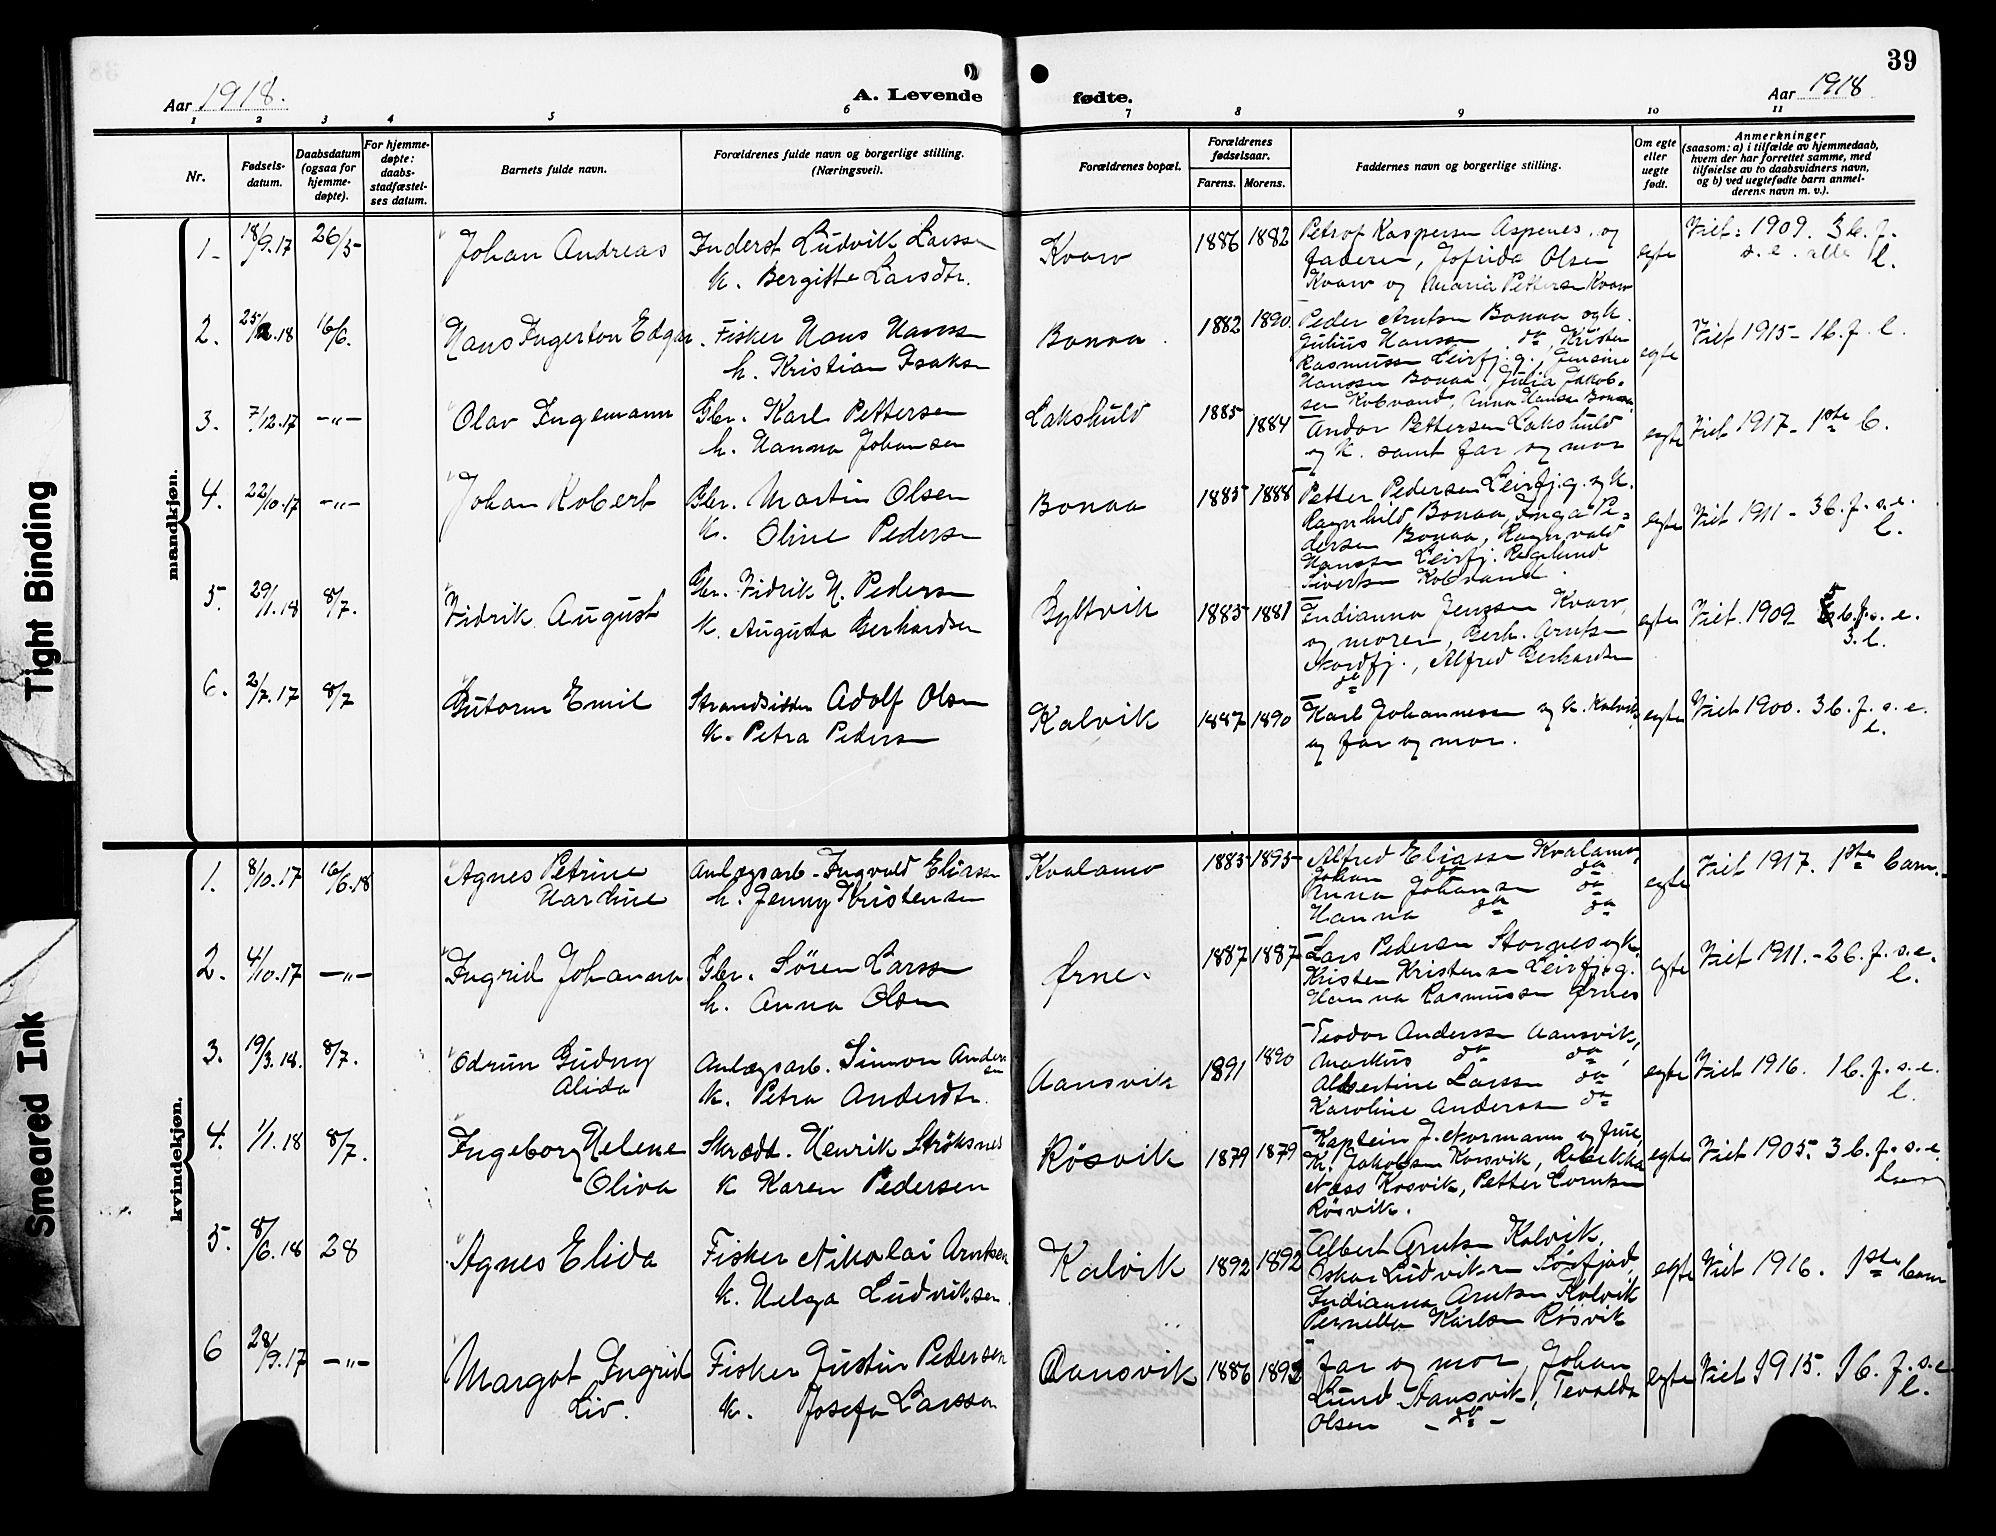 39
Aar 1918.
A. Levende fødte.
Aar 1918
1 2 3 4 5 6 7 8 9 10 11
Nr.
Fødsels-
datum.
Daabsdatum
(ogsaa for
hjemme-
døpte).
For hjemme-
døpte:
daabs-
stadfæstel-
ses datum.
Barnets fulde navn.
Forældrenes fulde navn og borgerlige stilling.
(Næringsvei).
Forældrenes bopæl.
Forældrenes
fødselsaar.
Farens. Morens.
Faddernes navn og borgerlige stilling.
Om egte
eller
uegte
født.
Anmerkninger
(saasom: a) i tilfælde av hjemmedaab,
hvem der har forrettet samme, med
tilføielse av to daabsvidners navn,
og b) ved uegtefødte barn anmel-
derens navn m. v.).
mandkjøn.
1. 18/9.17 26/5 Johan Andreas
Inderst Ludvik Larssen
k. Bergitte Larsdtr.
Kvarv 1886 1882
Petrof Kaspersen Aspenes. og
faderen, Jofrida Olsen
Kvarv og Maria Pettersen Kvarv
egte
Viet: 1909. 3 b. f.
s. e. alle l.
2. 16/6. Hans Ingerton Edgar.
Fisker Hans Hanssen
h. Kristian Isaksen
Bonaa. 1882 1890.
Peder Arntsen Bonaa og k.
Julius Hanssen do, Kristen
Rasmussen Leirfj. g., Jensine
Hanssen Bonaa, Julia Jakob-
sen Kobvand, Anna Hansen Bonaa.
egte
Viet 1915 - 1 b. f. l.
3. 7/12.17 -"- Olav Ingemann
Gbr. Karl Pettersen
h. Hanna Johansen
Lakshuld 1885 1884
Andor Pettersen Lakshuld
og k. samt far og mor
egte
Viet 1917 - 1ste b.
4. 22/10.17 -"- Johan Robert
Gbr. Martin Olsen
k. Oline Pedersen
Bonaa 1885 1888
Petter Pedersen Leirfj. g. og k.
Ragnhild Bonaa, Inga Pe-
dersen Bonaa, Ragnvald
Hanssen Leirfj.
Sivertsen Kobvand.
egte
Viet 1911 - 3 b. f. s. e.
l.
5. 29/1.18 8/7. Fidrik August
Gbr. Fidrik H. Pedersen
k. Augusta Gerhardsen
Byltvik 1885 1881
Indianna Jenssen Kvarv,
og moren, Berh. Arntsen
Nordfj., Alfred Gerhardsen
do
egte
Viet. 1909 b. f. s. e.
3. l.
6. 2/7.17 8/7 Gutorm Emil
Strandsidder Adolf Olsen
k. Petra Pedersen
Kalvik 1887 1890
Karl Johannesen og k. Kalvik,
og far og mor.
egte
Viet 1900. 3 b. f. s. e.
l.
kvindekjøn.
1. 8/10.17 16/6.18 Agnes Petrine
Hardine
Anlægsarb. Ingvald Eliassen
h. Jenny Kristensen
Kvalamo 1885 1895
Alfred Eliassen Kvalamo,
Johan do do
Anna Johansen do
Hanna do do
egte
Viet 1917. 1ste barn.
2. 4/10.17 -"- Ingrid Johanna.
Gbr. Sören Larssen
h. Anna Olsen
Ørne. 1887 1887
Lars Pedersen Stornes og k.
Kristen Kristensen Leirfj. g.
Hanna Rasmussen Ørnes
egte
Viet 1911. - 2 b. f. s. e.
l.
3. 19/3.18. 8/7. Odrun Gudny
Alida
Anlægsarb. Simon Anders
en
k. Petra Andersdtr.
Aansvik 1891 1890
Teodor Anderssen Aansvik,
Markus do do,
Albertine Larssen do
Karoline Anderssen do
egte
Viet 1916. 1 b. f. s. e.
l.
4. 1/1.18 8/7. Ingeborg Helene
Oliva
Skrædd. Henrik Ströksnes
k Karen Pedersen
Rösvik 1879 1879
Kaptein J. Normann og frue,
K. Jakobsen Korsvik, Rebekka
Næss Kosvik, Petter Corntsen
Rösvik.
egte
Viet 1905. 3 b. f. s. e.
5. 8/6.18 28 Agnes Elida
Fisker Nikolai Arntsen
k. Helga Ludviksen.
Kalvik 1892 1892
Albert Arntsen Kalvik,
Oskar Ludviksen Sörfjord,
Indianna Arntsen Kalvik
Pernella Karlsen Rösvik
egte
Viet 1916. 1ste barn
6 28/9.17 -"- Margot Ingrid
Liv.
Fisker Justin Pedersen
k. Josefa Larssen
Aansvik 1886 1892
far og mor, Johan
Lund Aansvik, Tevalda
Olsen - do -
egte
Viet 1915. 1 b. f. s. e
l.
Tight Binding
Smeared Ink